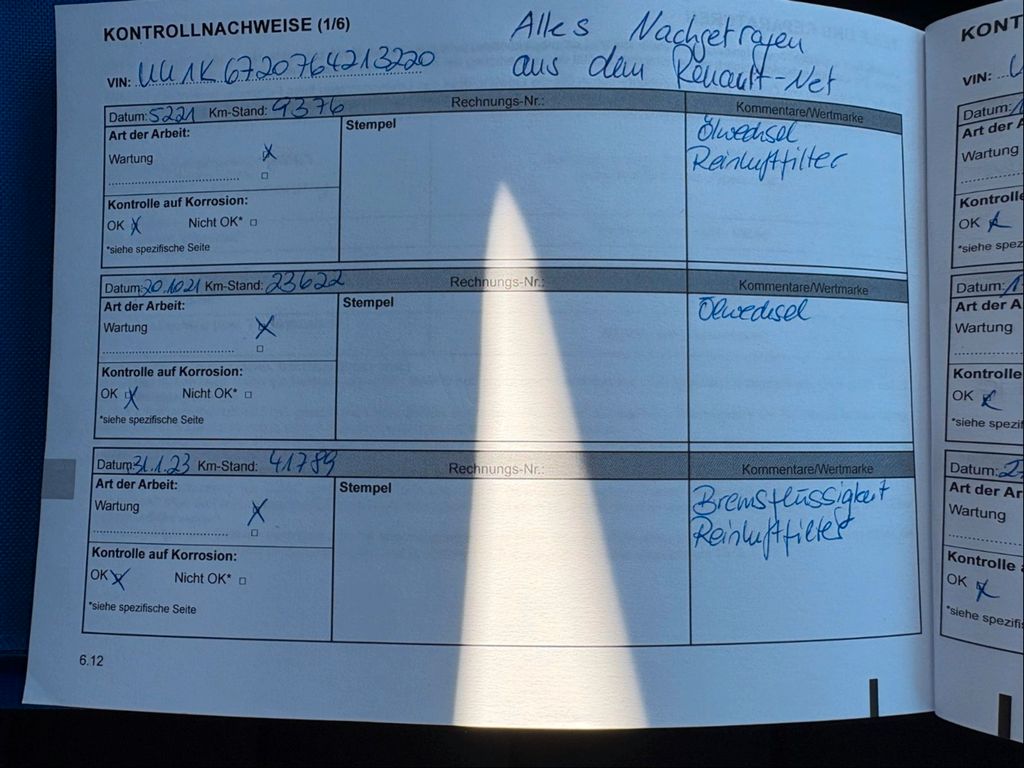 KONTROLLNACHWEISE (1/6)
Alles Nachgetragen
aus dem Renault-Net
VIN: UU1K6720764213220
Datum: 5221 Km-Stand: 9376 Rechnungs-Nr.: Kommentare/Wertmarke
Art der Arbeit: Stempel Ölwechsel
Wartung X Reinluftfilter
Kontrolle auf Korrosion:
OK X Nicht OK* □
*siehe spezifische Seite
Datum: 20.1021 Km-Stand: 23622 Rechnungs-Nr.: Kommentare/Wertmarke
Art der Arbeit: Stempel Ölwechsel
Wartung X
Kontrolle auf Korrosion:
OK X Nicht OK* □
*siehe spezifische Seite
Datum: 31.1.23 Km-Stand: 41789 Rechnungs-Nr.: Kommentare/Wertmarke
Art der Arbeit: Stempel Bremsflüssigkeit
Wartung X Reinluftfilter
Kontrolle auf Korrosion:
OK X Nicht OK* □
*siehe spezifische Seite
6.12
KONT
VIN:
Datum:
Art der A
Wartung
Kontrolle
OK X
*siehe spez
Datum:
Art der A
Wartung
Kontrolle
OK X
*siehe spezif
Datum:
Art der Ar
Wartung
Kontrolle
OK X
*siehe spezifi